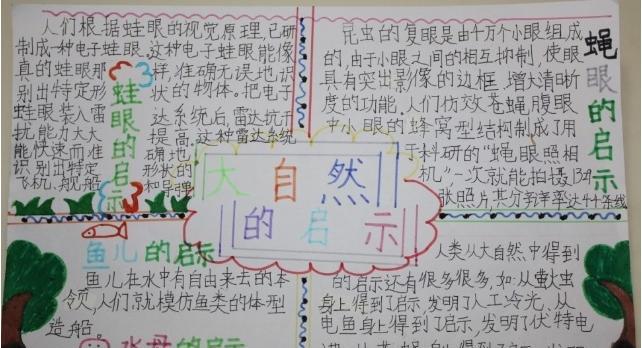 人们根据蛙眼的视觉原理,已研
制成一种电子蛙眼.这种电子蛙眼能像
真的蛙眼那样,准确无误地识
别出特定形状的物体。把电子
蛙眼装入雷达系统后,雷达抗干
扰能力大大提高.这种雷达系统
能快速而准确地
识别出特定形状的
飞机,舰船和导弹
蛙眼的启示
昆虫的复眼是由十万个小眼组成
的,由于小眼之间的相互抑制,使眼
具有突出影像的边框,增大清晰
度的功能.人们仿效苍蝇腹眼
中小眼的蜂窝型结构制成了用
于科研的“蝇眼照相
机”一次就能拍摄
张照片,其分
蝇眼的启示
大自然
的启示
鱼儿的启示
鱼儿在水中有自由来去的本
领,人们就模仿鱼类的体型
造船。
水母的启示
人类从大自然中得到
的启示还有很多很多,如:从萤火虫
身上得到了启示,发明了人工冷光,从
电鱼身上得到了启示,发明了伏特电